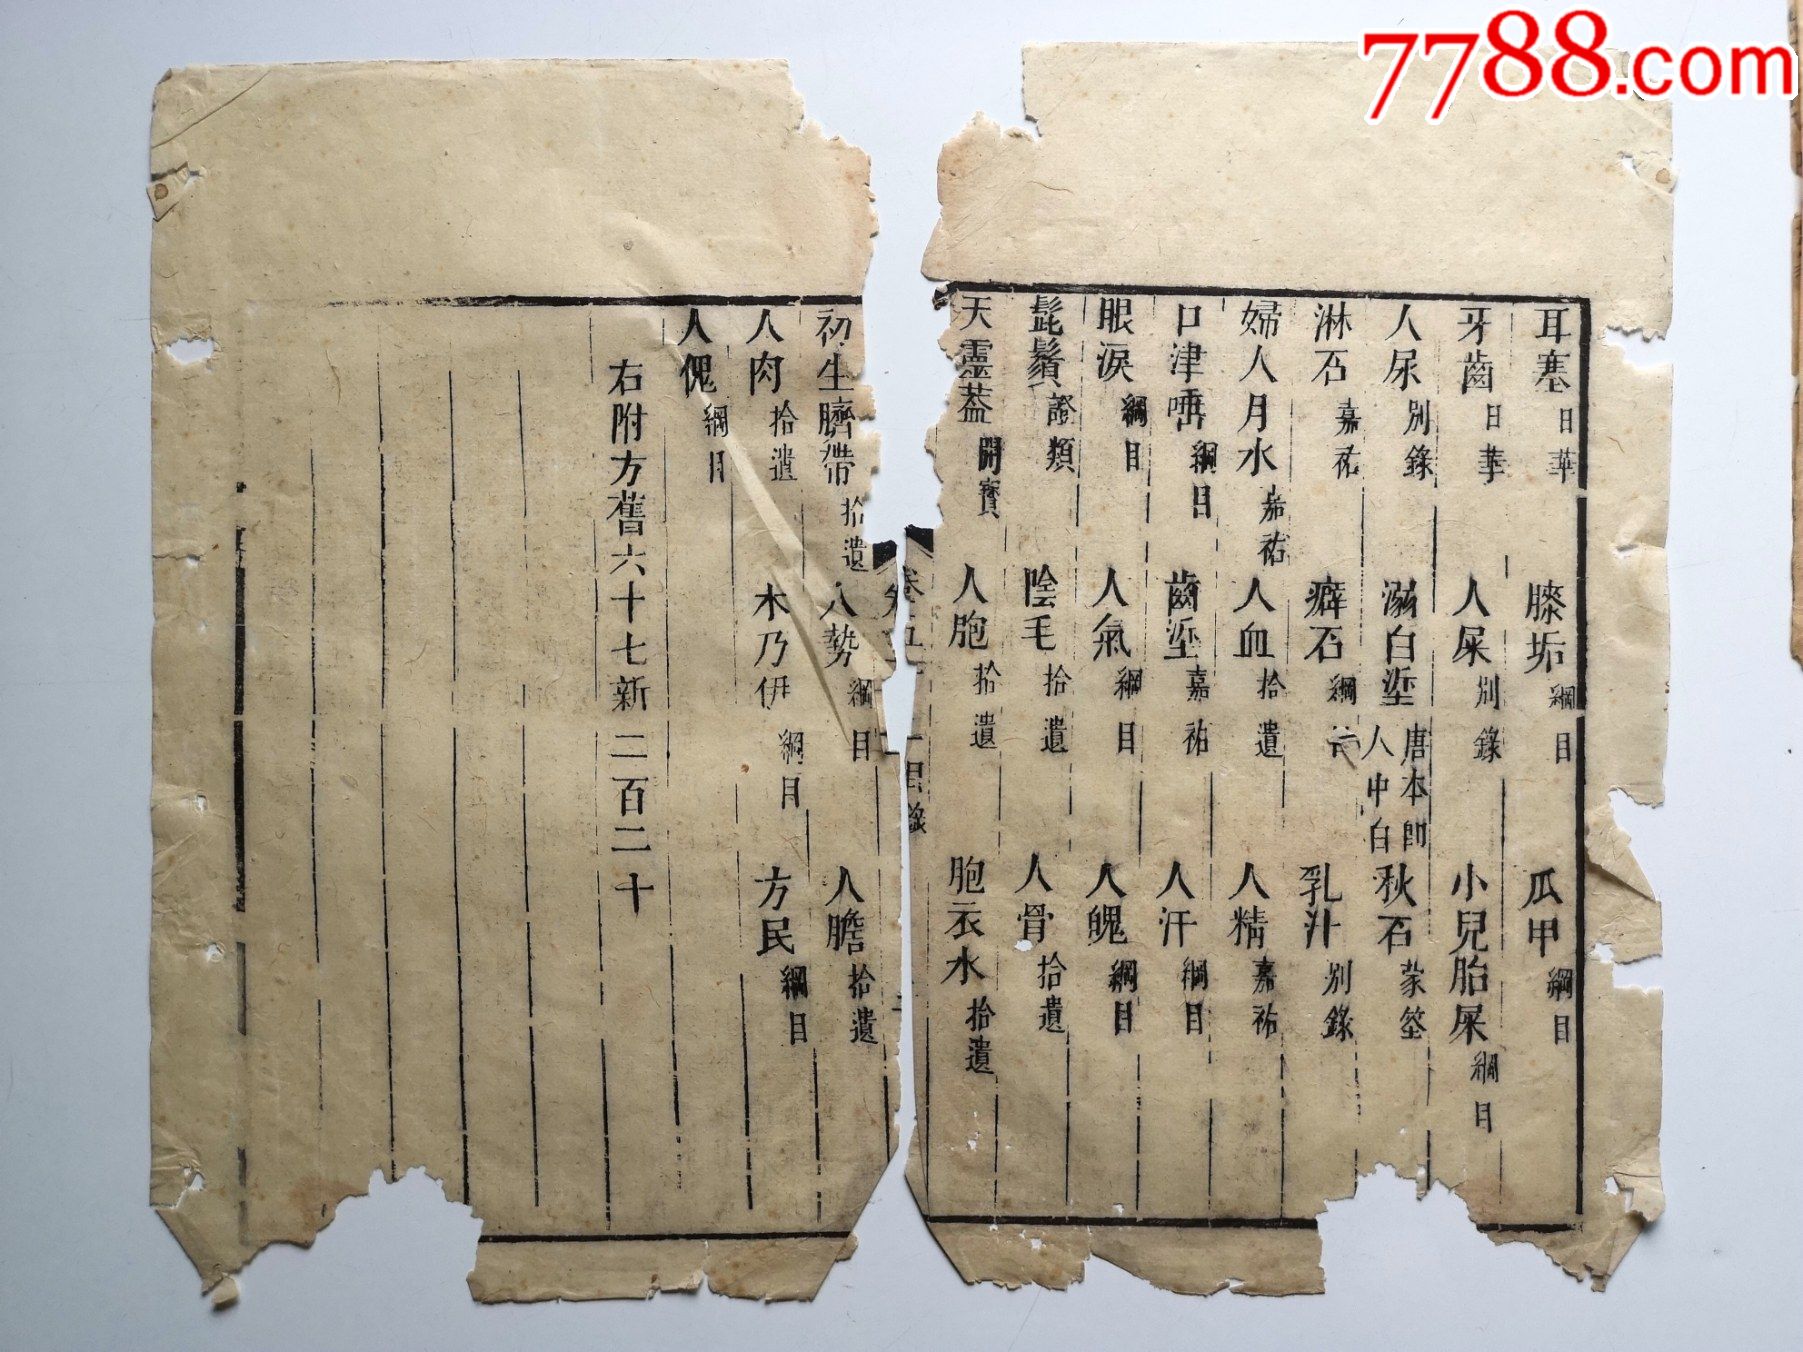 7788.com
耳塞日華 膝垢綱目 瓜甲綱目
牙齒日華 人屎别錄 小兒胎屎綱目
人尿别錄 溺白垽唐本即人中白 秋石蒙筌
淋石嘉祐 癖石綱 乳汁别錄
婦人月水嘉祐 人血拾遺 人精嘉祐
口津唾綱目 齒垽嘉祐 人汗綱目
眼淚綱目 人氣綱目 人魄綱目
髭鬚證類 陰毛拾遺 人骨拾遺
天靈葢開寳 人胞拾遺 胞衣水拾遺
卷五十二目錄
初生臍帶拾遺 人勢綱目 人膽拾遺
人肉拾遺 木乃伊綱目 方民綱目
人傀綱目
右附方舊六十七新二百二十